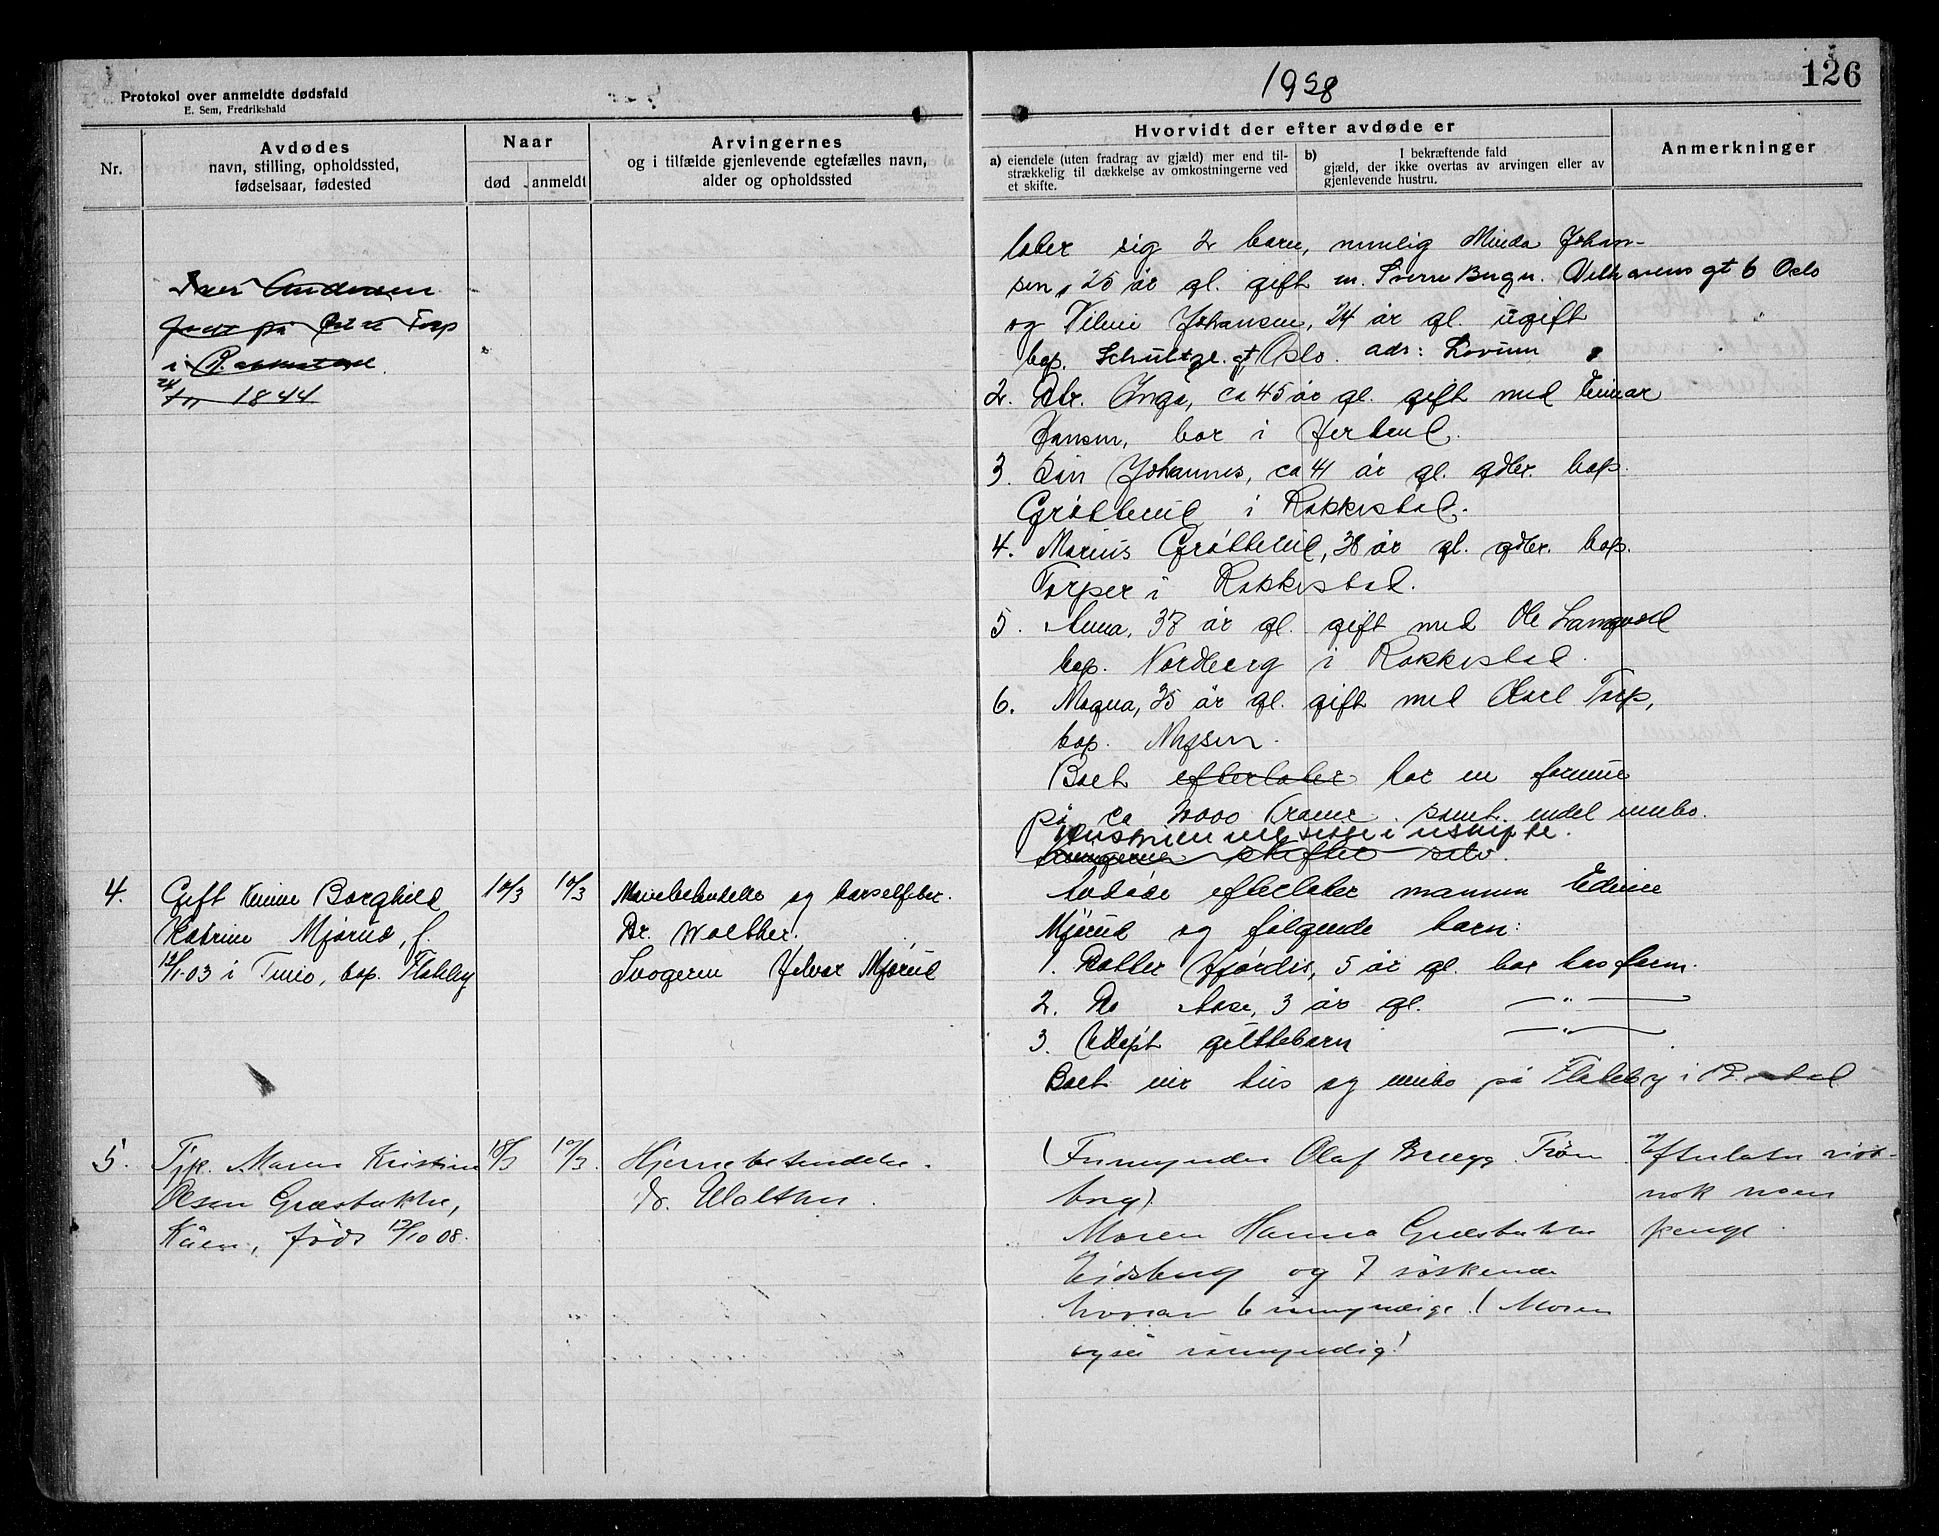 Protokol over anmeldte dødsfald
E. Sem, Fredrikshald
Nr.
Avdødes
navn, stilling, opholdssted,
fødselsaar, fødested
Naar
død
anmeldt
Arvingernes
og i tilfælde gjenlevende egtefælles navn,
alder og opholdssted
Andersen
på Torp
i Rakkestad
1844
4.
Gift kvinne Borghild
Katrine Mjørud, f.
12/1-03 i Tune, bop. Flateby
10/3
10/3
Mavebetendelse og barselfeber.
Dr. Walther.
Svogeren Halvor Mjørud
5.
Tjp. Maren Kristine
Olsen Græsbakke,
født 12/10 08.
18/3
19/3
Hjernebetendelse.
Dr. Walther.
1928
126
Hvorvidt der efter avdøde er
a) eiendele (uten fradrag av gjæld) mer end til-
strækkelig til dækkelse av omkostningerne ved
et skifte.
b) I bekræftende fald
gjæld, der ikke overtas av arvingen eller av
gjenlevende hustru.
Anmerkninger
later sig 2 barn, nemlig Minda Johan-
sen, år gl. gift m. Sverre gt 6 Oslo
og Johansen, 24 år gl. ugift
bop. gt, Oslo. adr:
2. Dtr. Inga, ca 45 år gl. gift med Einar
Hansen, bor i
3. Søn Johannes, ca 41 år gl. gdbr. bop.
Grøtterud i Rakkestad.
4. Marius Grøtterud, 38 år gl. gdbr. bop.
Torper i Rakkestad.
5. Anna, 37 år gl. gift med Ole Langvold
bop. Nordberg i Rakkestad.
6. Magna, 35 år gl. gift med Karl Torp,
bop. Mysen.
Boet efterlater har en formue
på ca kroner samt endel innbo.
i uskifte.
Arvingerne skifter selv.
Avdøde efterlater mannen Edvin
Mjørud og følgende barn:
1. Datter Hjørdis, 5 år gl. bor hos faren.
2. Do Aase, 3 år gl. — " —
3. Udøpt guttebarn — " —
Boet eier hus og innbo på Flateby i R.stad
(Formynder Olaf Trøm-
borg)
Moren Hanna Græsbakke
Eidsberg og 7 søskende
hvorav 6 umyndige. (Moren
også umyndig)
Efterlater
nok noen
penge.